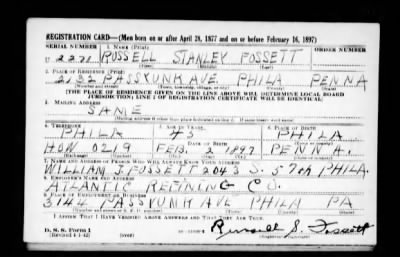 REGISTRATION CARD—(Men born on or after April 28, 1877 and on or before February 16, 1897)
SERIAL NUMBER 1. NAME (Print) ORDER NUMBER
U 2271 RUSSELL STANLEY FOSSETT
(First) (Middle) (Last)
2. PLACE OF RESIDENCE (Print)
2132 PASSYUNK AVE PHILA PENNA
(Number and street) (Town, township, village, or city) (County) (State)
[THE PLACE OF RESIDENCE GIVEN ON THE LINE ABOVE WILL DETERMINE LOCAL BOARD
JURISDICTION; LINE 2 OF REGISTRATION CERTIFICATE WILL BE IDENTICAL]
3. MAILING ADDRESS
SAME
[Mailing address if other than place indicated on line 2. If same insert word same]
4. TELEPHONE 5. AGE IN YEARS 6. PLACE OF BIRTH
PHILA 45 PHILA
DATE OF BIRTH
HOW 0219 FEB. 2 1897 PENNA.
(Exchange) (Number) (Mo.) (Day) (Yr.) (State or country)
7. NAME AND ADDRESS OF PERSON WHO WILL ALWAYS KNOW YOUR ADDRESS
WILLIAM J FOSSETT 2043 S. 57th PHILA.
8. EMPLOYER'S NAME AND ADDRESS
ATLANTIC REFINING CO.
9. PLACE OF EMPLOYMENT OR BUSINESS
3144 PASSYUNK AVE PHILA PA
(Number and street or R. F. D. number) (Town) (County) (State)
I AFFIRM THAT I HAVE VERIFIED ABOVE ANSWERS AND THAT THEY ARE TRUE.
D. S. S. Form 1
(Revised 4-1-42) (over) Russell S. Fossett
(Registrant's signature)